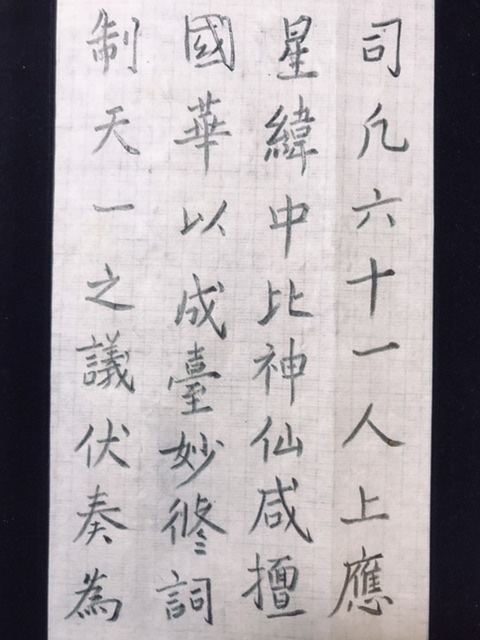 司凢六十一人上應
星緯中比神仙咸擅
國華以成臺妙修詞
制天一之議伏奏為